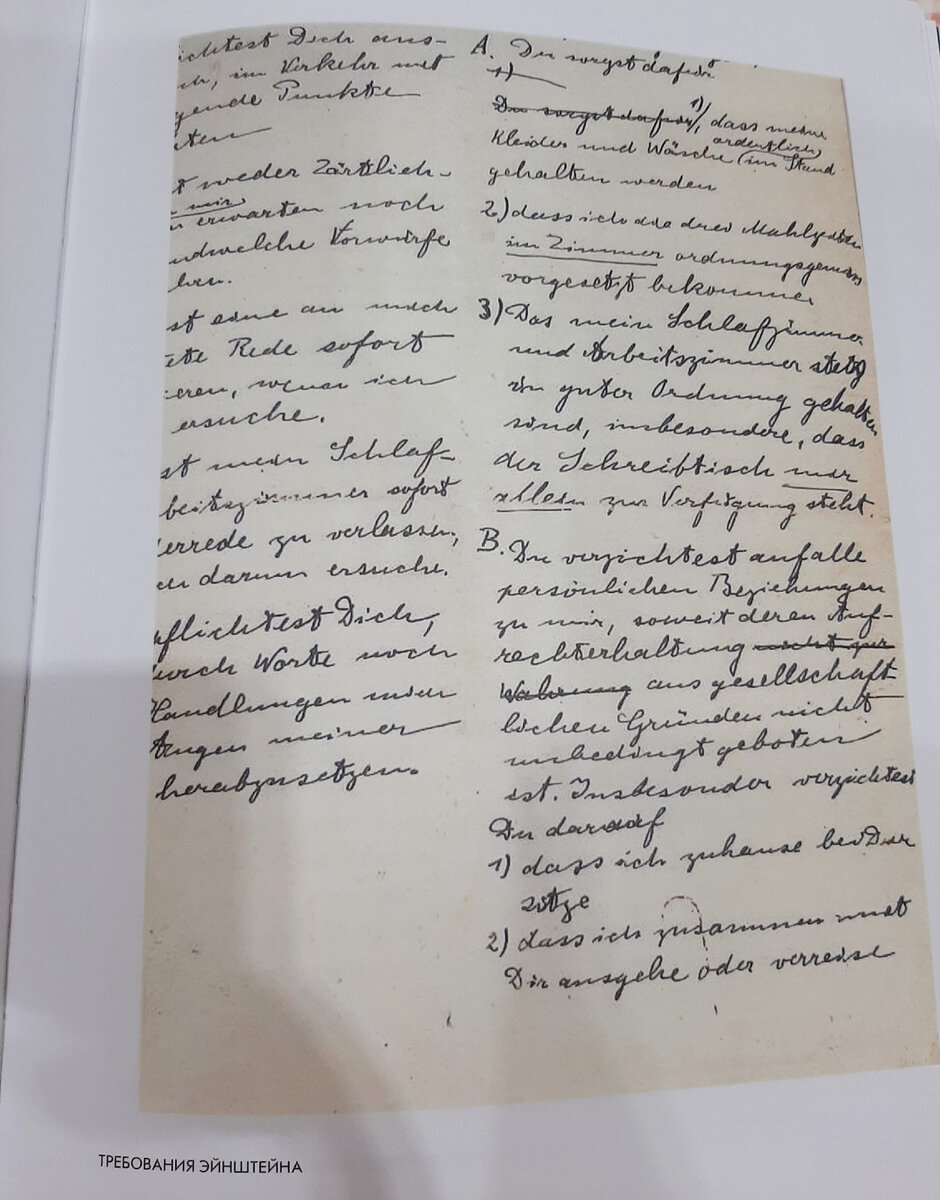 ichtest Dich aus-
ch, im Verkehr mit
gende Punkte
ten
t weder Zärtlich-
n mir
n erwarten noch
ndwelche Vorwürfe
hen.
st eine an mich
ete Rede sofort
eren, wenn ich
ersuche.
st mein Schlaf-
beitszimmer sofort
errede zu verlassen,
ch darum ersuche.
pflichtest Dich,
urch Worte noch
Handlungen mich
Augen meiner
herabzusetzen.
A. Du sorgst dafür
1)
Du sorgst dafür, 1) dass meine
Kleider und Wäsche ordentlich im Stand
gehalten werden
2) dass ich die drei Mahlzeiten
im Zimmer ordnungsgemäss
vorgesetzt bekomme.
3) Das mein Schlafzimmer
und Arbeitszimmer stets
in guter Ordnung gehalten
sind, insbesondere, dass
der Schreibtisch mir
allein zur Verfügung steht.
B. Du verzichtest auf alle
persönlichen Beziehungen
zu mir, soweit deren Auf-
rechterhaltung nicht zur
Wahrung aus gesellschaft
lichen Gründen nicht
unbedingt geboten
ist. Insbesonder verzichtest
Du darauf
1) dass ich zuhause bei Dir
sitze
2) dass ich zusammen mit
Dir ausgehe oder verreise
ТРЕБОВАНИЯ ЭЙНШТЕЙНА